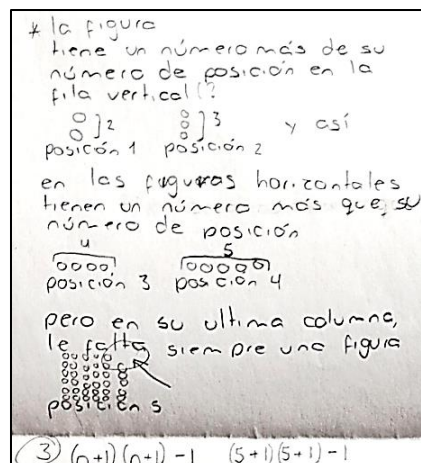 * la figura
tiene un número más de su
número de posición en la
fila vertical (?
]2 ]3 y así
posicón 1 posición 2
en las figuras horizontales
tienen un número más que, su
número de posición
4 5
posición 3 posción 4
pero en su ultima columna,
le falta siempre una figura
posición 5
3 (n+1)(n+1)-1 (5+1)(5+1)-1